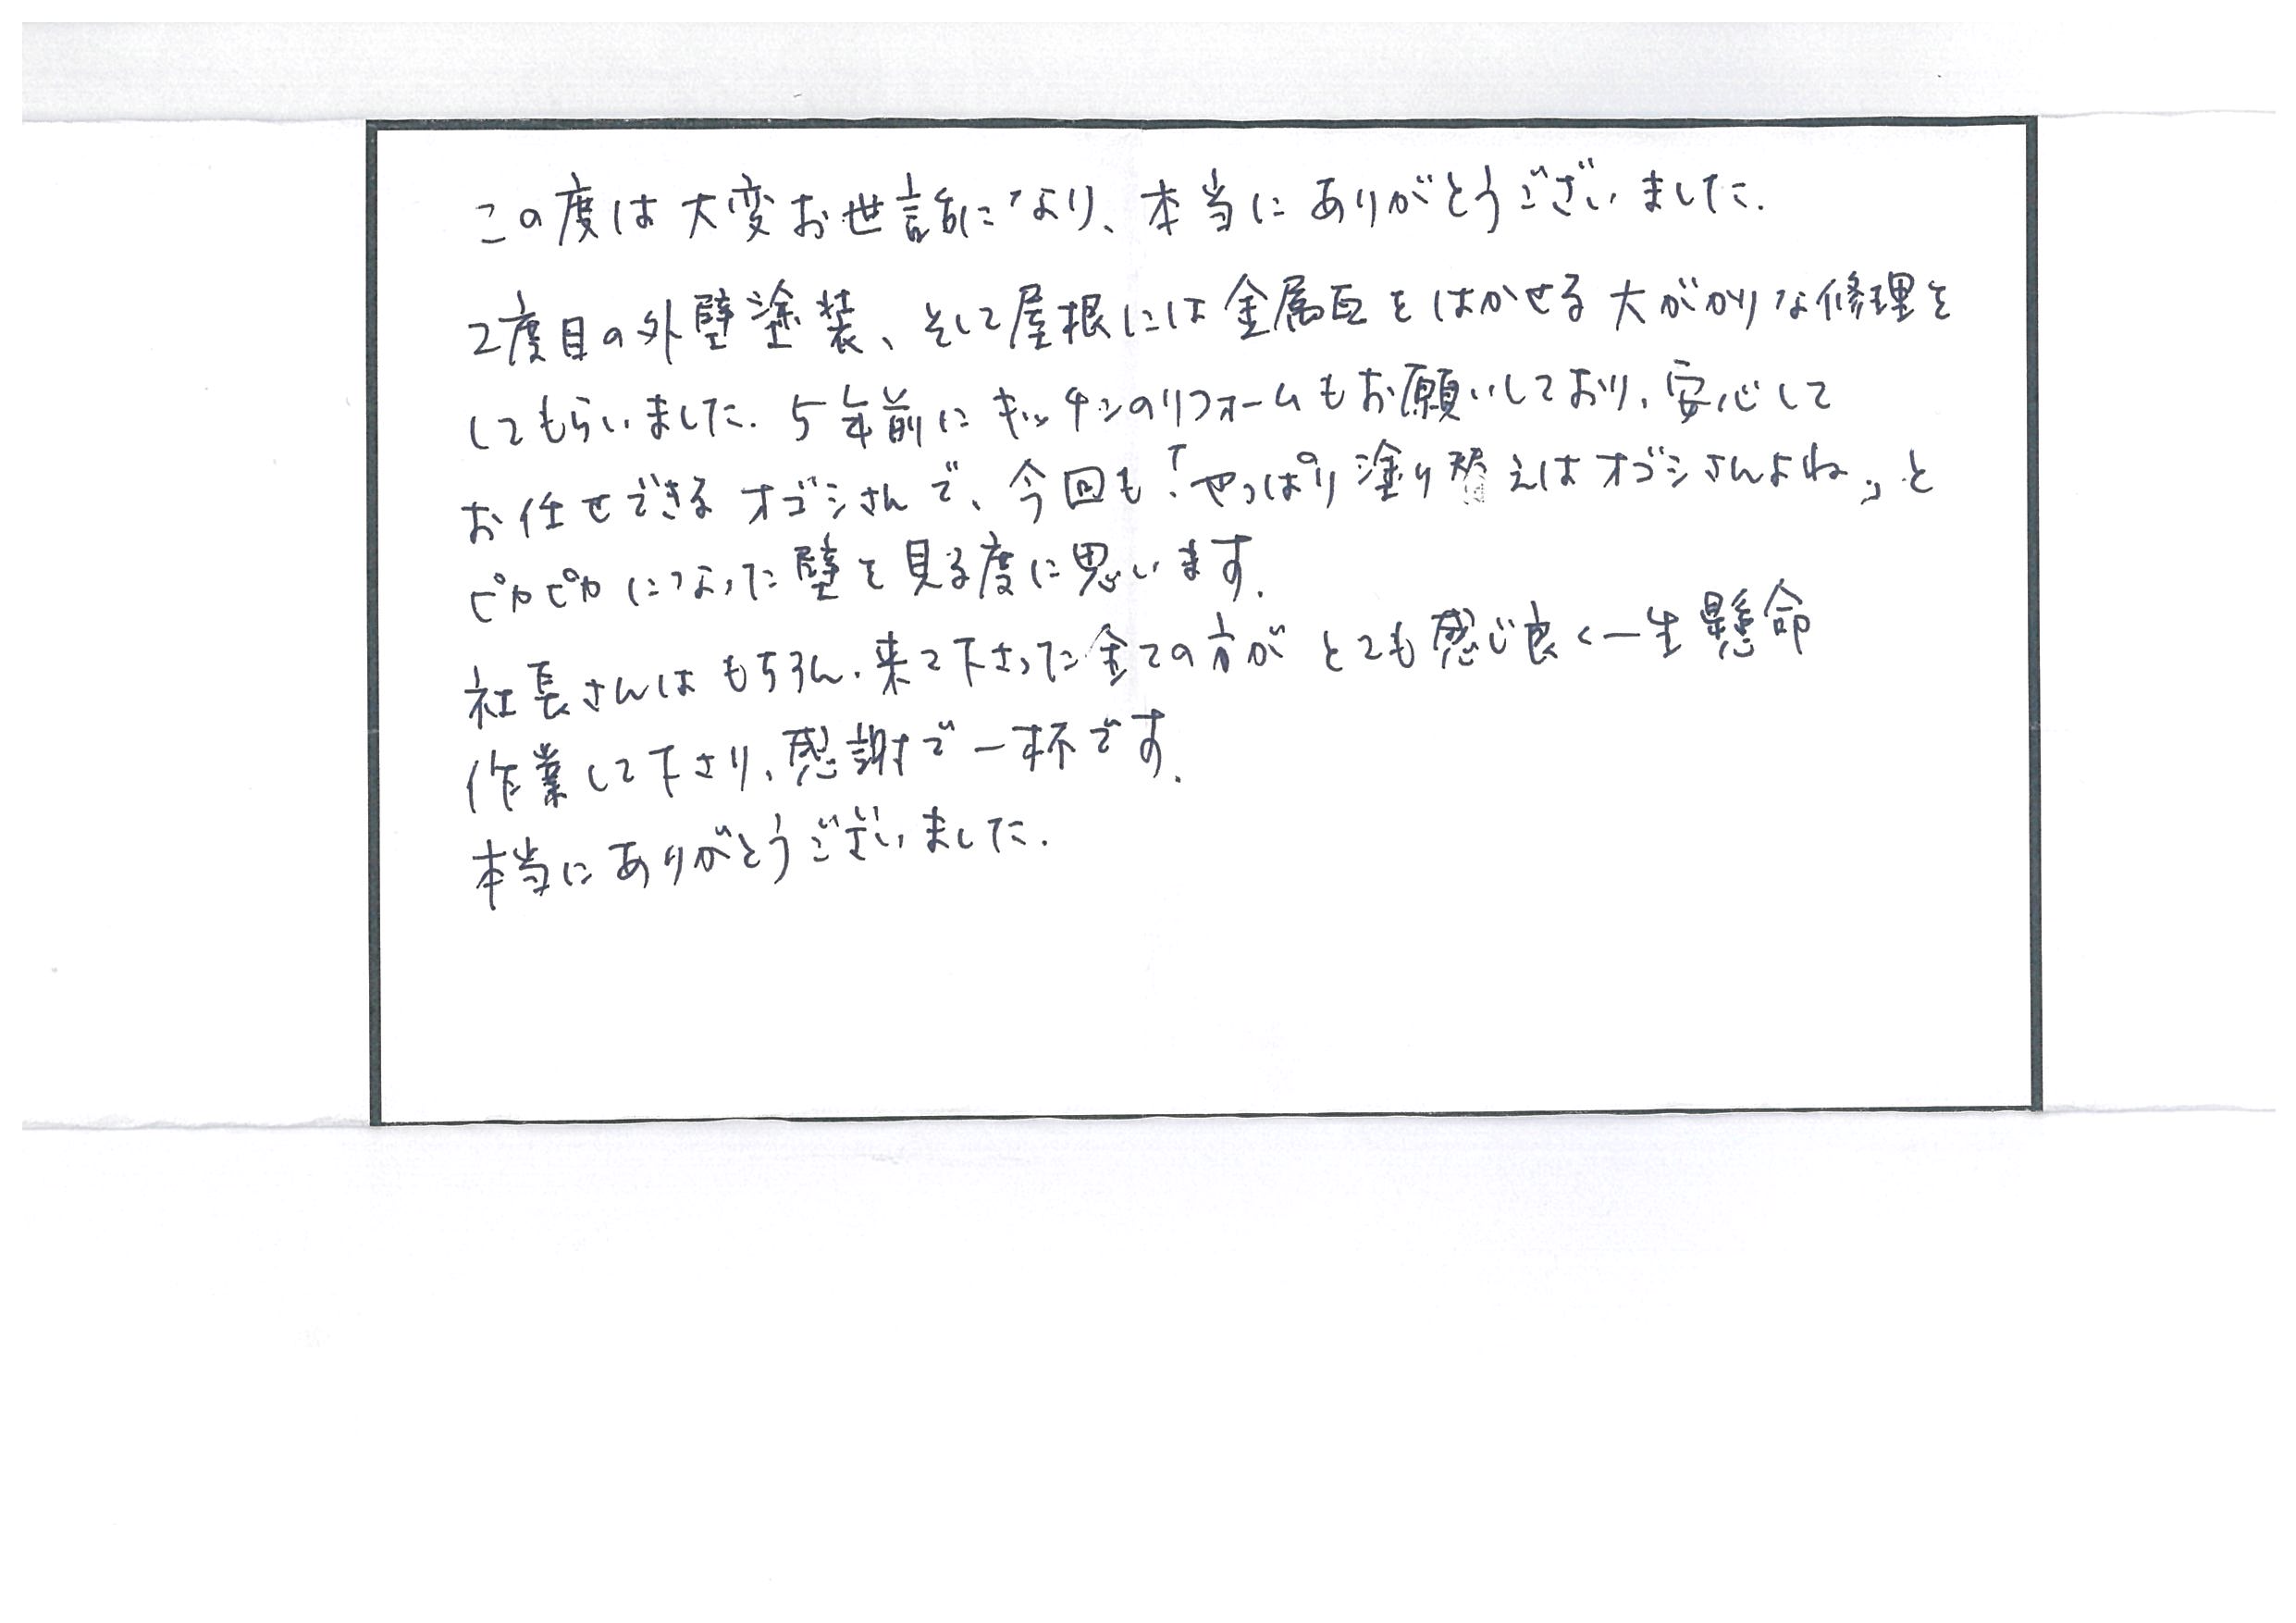 この度は大変お世話になり、本当にありがとうございました.
2度目の外壁塗装、そして屋根には金属瓦をはかせる大がかりな修理を
してもらいました. 5年前にキッチンのリフォームもお願いしており、安心して
お任せできるオゴシさんで、今回も「やっぱり塗り替えはオゴシさんよね」と
ピカピカになった壁を見る度に思います.
社長さんはもちろん、来て下さった全ての方がとても感じ良く一生懸命
作業して下さり、感謝で一杯です.
本当にありがとうございました.